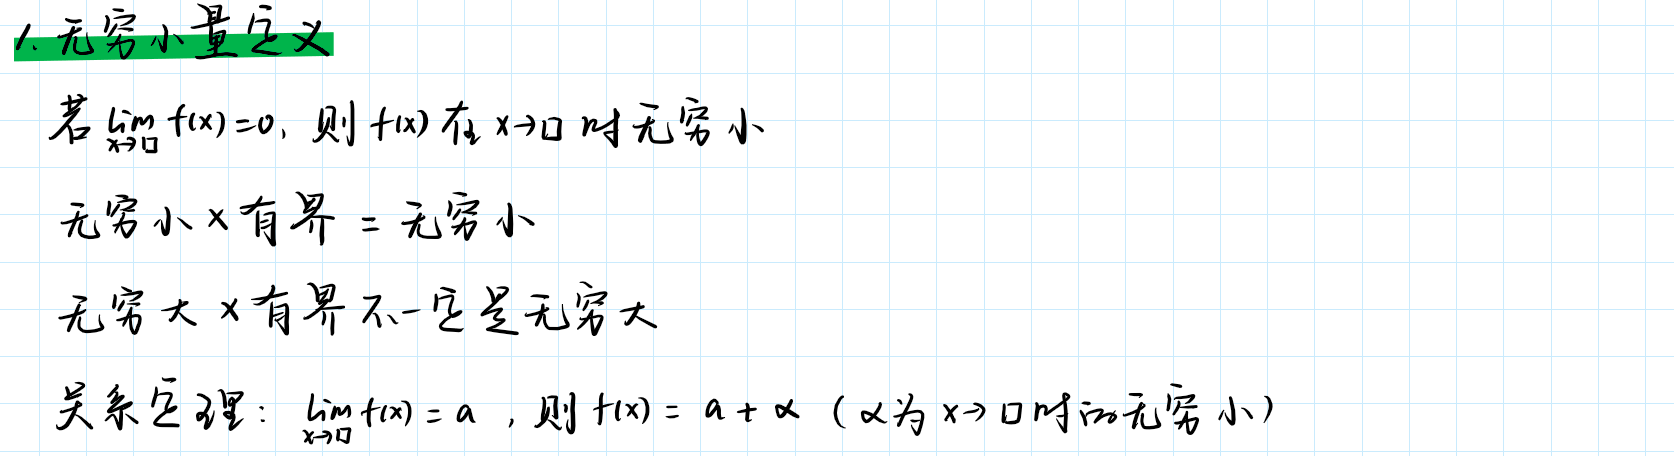 1. 无穷小量定义
若 lim x→□ f(x)=0, 则 f(x) 在 x→□ 时无穷小
无穷小 × 有界 = 无穷小
无穷大 × 有界不一定是无穷大
关系定理: lim x→□ f(x) = a , 则 f(x) = a + α ( α为 x→□时的无穷小 )